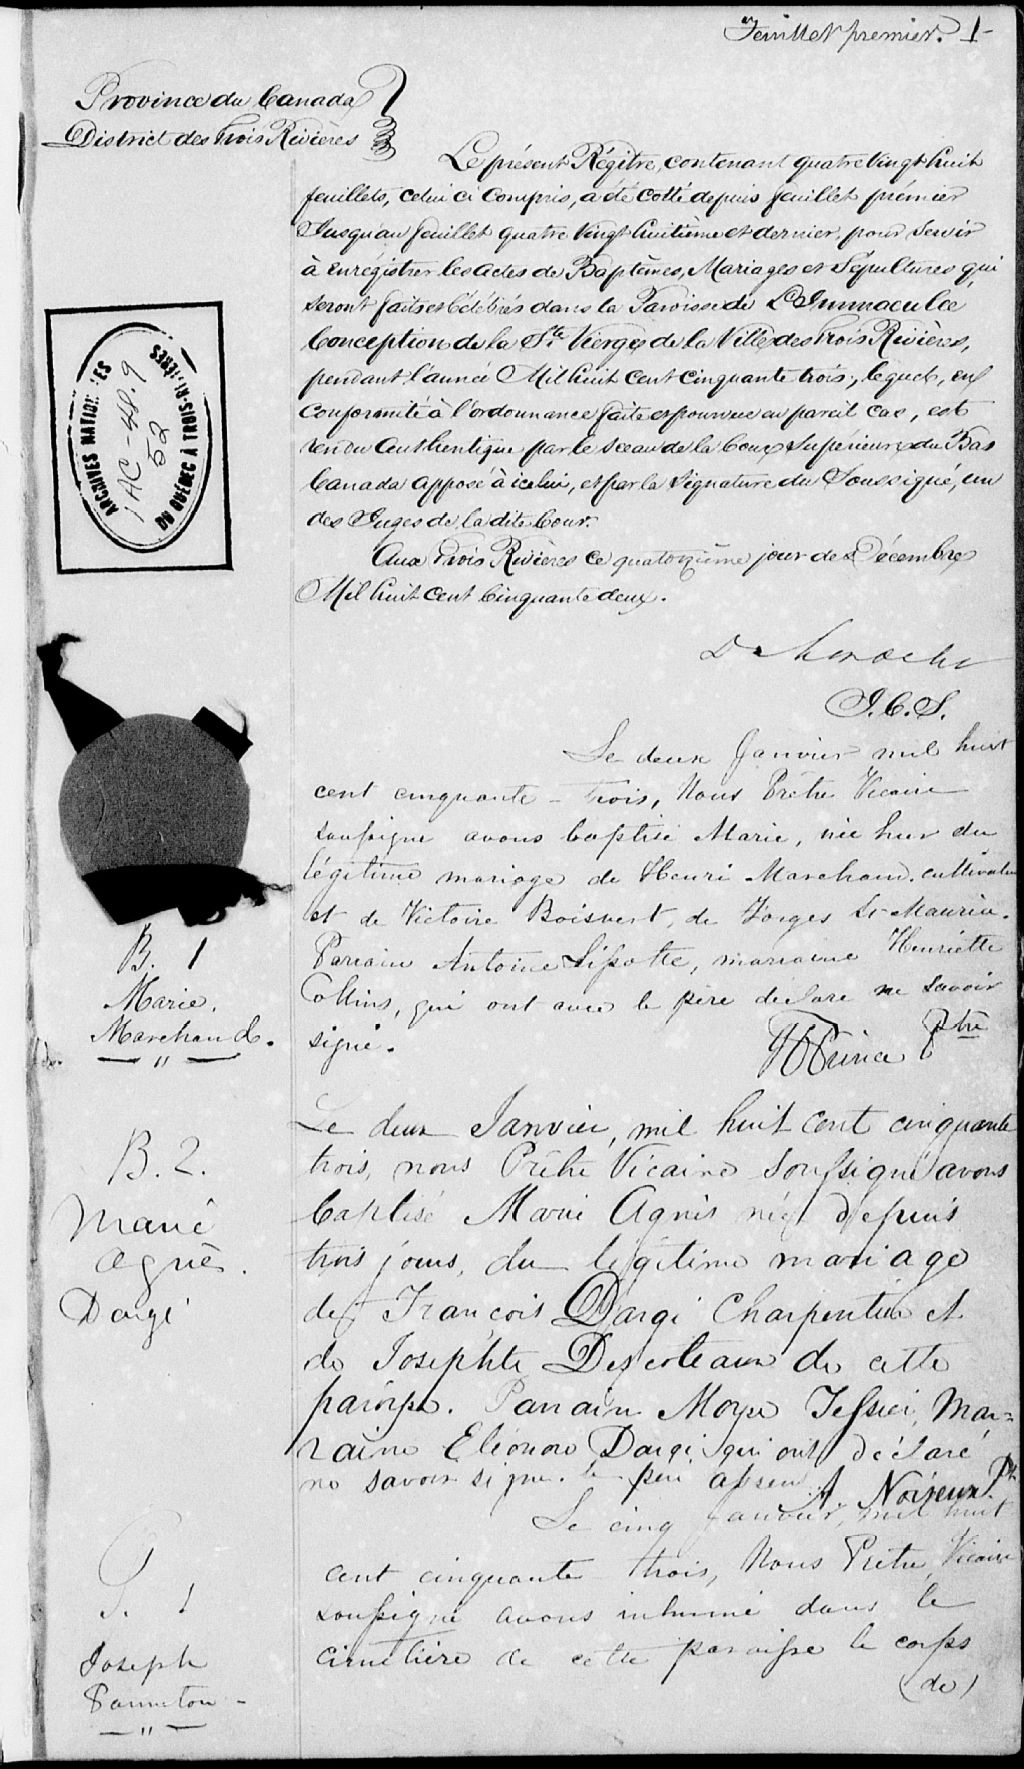 Feuillet premier. 1-
Province du Canada
District des Trois Rivières
Le présent Régître, contenant quatre vingt huit
feuillets, celui ci compris, a été cotté depuis feuillet prémier
Jusqu'au feuillet quatre vingt huitième et dernier, pour servir
à enrégistrer les actes de Baptêmes, Mariages et Sépultures qui
seront faits et célébrés dans la Paroisse de L'Immaculée
Conception de la Ste Vierge de la Ville des Trois Rivières,
pendant l'année Mil huit cent cinquante trois, lequel, en
conformité à l'ordonnance faite et pourvue en pareil cas, est
rendu authentique par le sceau de la Cour Supérieure du Bas
Canada apposé à icelui, et par la signature du Soussigné, un
des Juges de la dite Cour.
Aux Trois Rivières ce quatorzième jour de Décembre
Mil huit cent cinquante deux.
J.C.S.
ARCHIVES NATIONALES
1 AC-48.9
52
DU QUÉBEC À TROIS-RIVIÈRES
B. 1
Marie.
Marchand.
Le deux Janvier mil huit
cent cinquante-trois, Nous Prêtre Vicaire
soussigné avons baptisé Marie, née hier du
légitime mariage de Henri Marchand, cultivateur
et de Victoire Boisvert, de Forges St-Maurice.
Parrain Antoine Lipotte, marraine Henriette
Collins, qui ont avec le père déclaré ne savoir
signé.
Prince Ptre
B. 2.
Marie
Agnès.
Dargi
Le deux Janvier, mil huit cent cinquante
trois, nous Prêtre Vicaire soussigné avons
baptisé Marie Agnès née depuis
trois jours, du légitime mariage
de François Dargi Charpentier et
de Josephte Descoteaux de cette
paroisse. Parrain Moyse Tessier, Mar=
raine Eléonore Dargi qui ont déclaré
ne savoir signer. le père absent. A Noiseux Ptre
S. 1
Joseph
Panneton-
Le cinq Janvier, mil huit
cent cinquante trois, Nous Prêtre Vicaire
soussigné avons inhumé dans le
cimetière de cette paroisse le corps
(de)